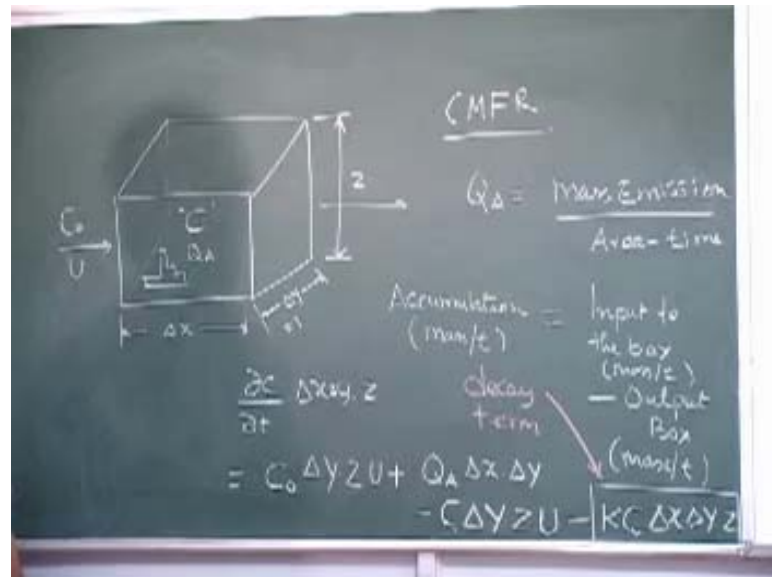 CMFR
Q_A = Mass Emission
Area-time
Z
"C"
C₀
Q_A
U
Δx
Δy
Accumulation (mass/t) = Input to the box (mass/t)
— Output Box (mass/t)
decay term
∂C/∂t Δx Δy. z
= C₀ ΔY Z U + Q_A ΔX ΔY
- C ΔY Z U - KC ΔX ΔY Z